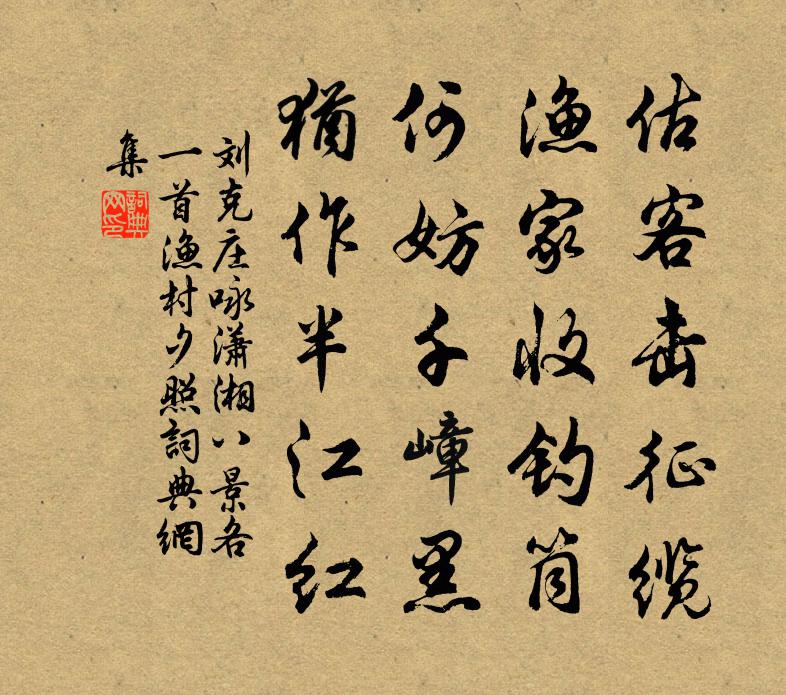 估客击征缆
渔家收钓筒
何妨千嶂黑
猶作半江红
刘克庄咏潇湘八景各
一首渔村夕照詞典網
集
詞典
网印